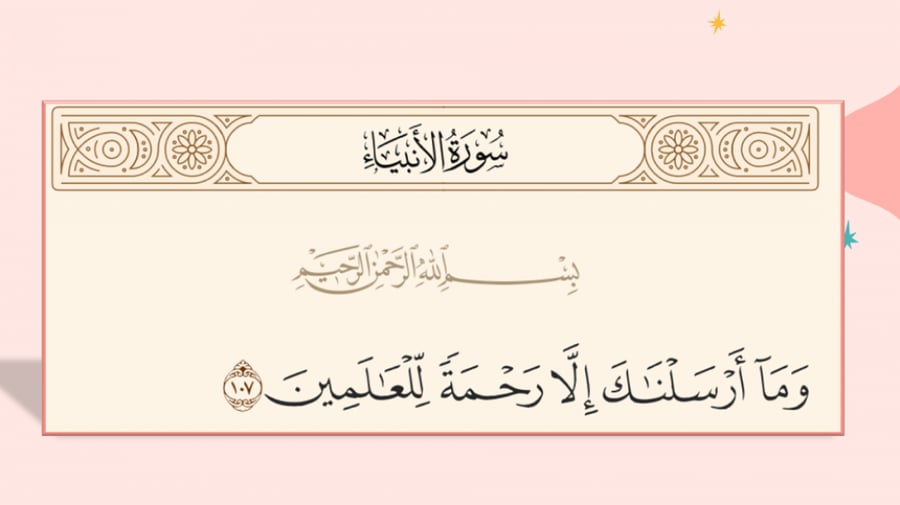 سُورَةُ الأَنبِيَاءِ
بِسْمِ ٱللَّهِ ٱلرَّحْمَٰنِ ٱلرَّحِيمِ
وَمَآ أَرْسَلْنَٰكَ إِلَّا رَحْمَةً لِّلْعَٰلَمِينَ ١٠٧